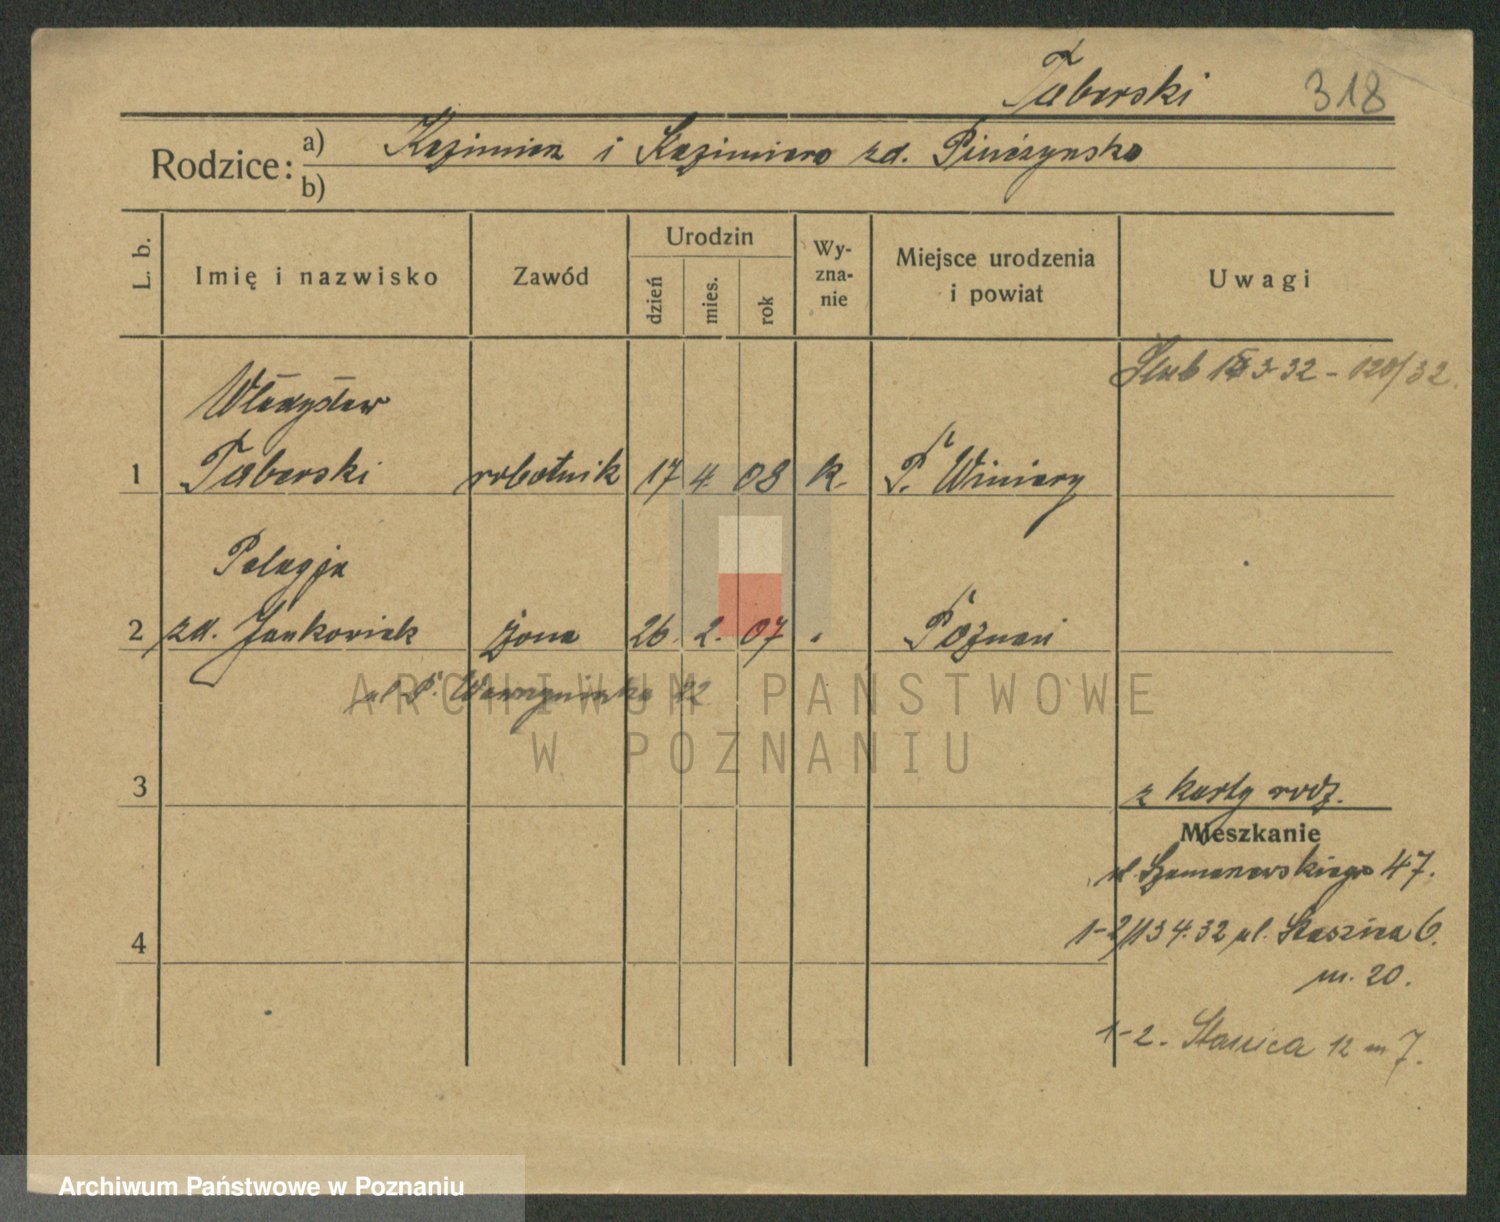 Taberski 318
Rodzice: a) Kazimierz i Kazimiera zd. Pinczyńska
b)
L. b. Imię i nazwisko Zawód Urodzin dzień mies. rok Wy-zna-nie Miejsce urodzenia i powiat Uwagi
Ślub 3 32 - 120/32.
Władysław
1 Taberski robotnik 17 4. 08 k. P. Winiary
Pelagja
2 zd. Jankowiak żona 26. 2. 07 . Poznań
ul. Wawrzyniaka 22
ARCHIWUM PAŃSTWOWE
W POZNANIU
3 z karty rodz.
Mieszkanie
ul. Szamarzewskiego 47.
4 1-2/13 4.32 ul. Staszica 6.
m. 20.
1-2. Stasica 12 m 7.
Archiwum Państwowe w Poznaniu